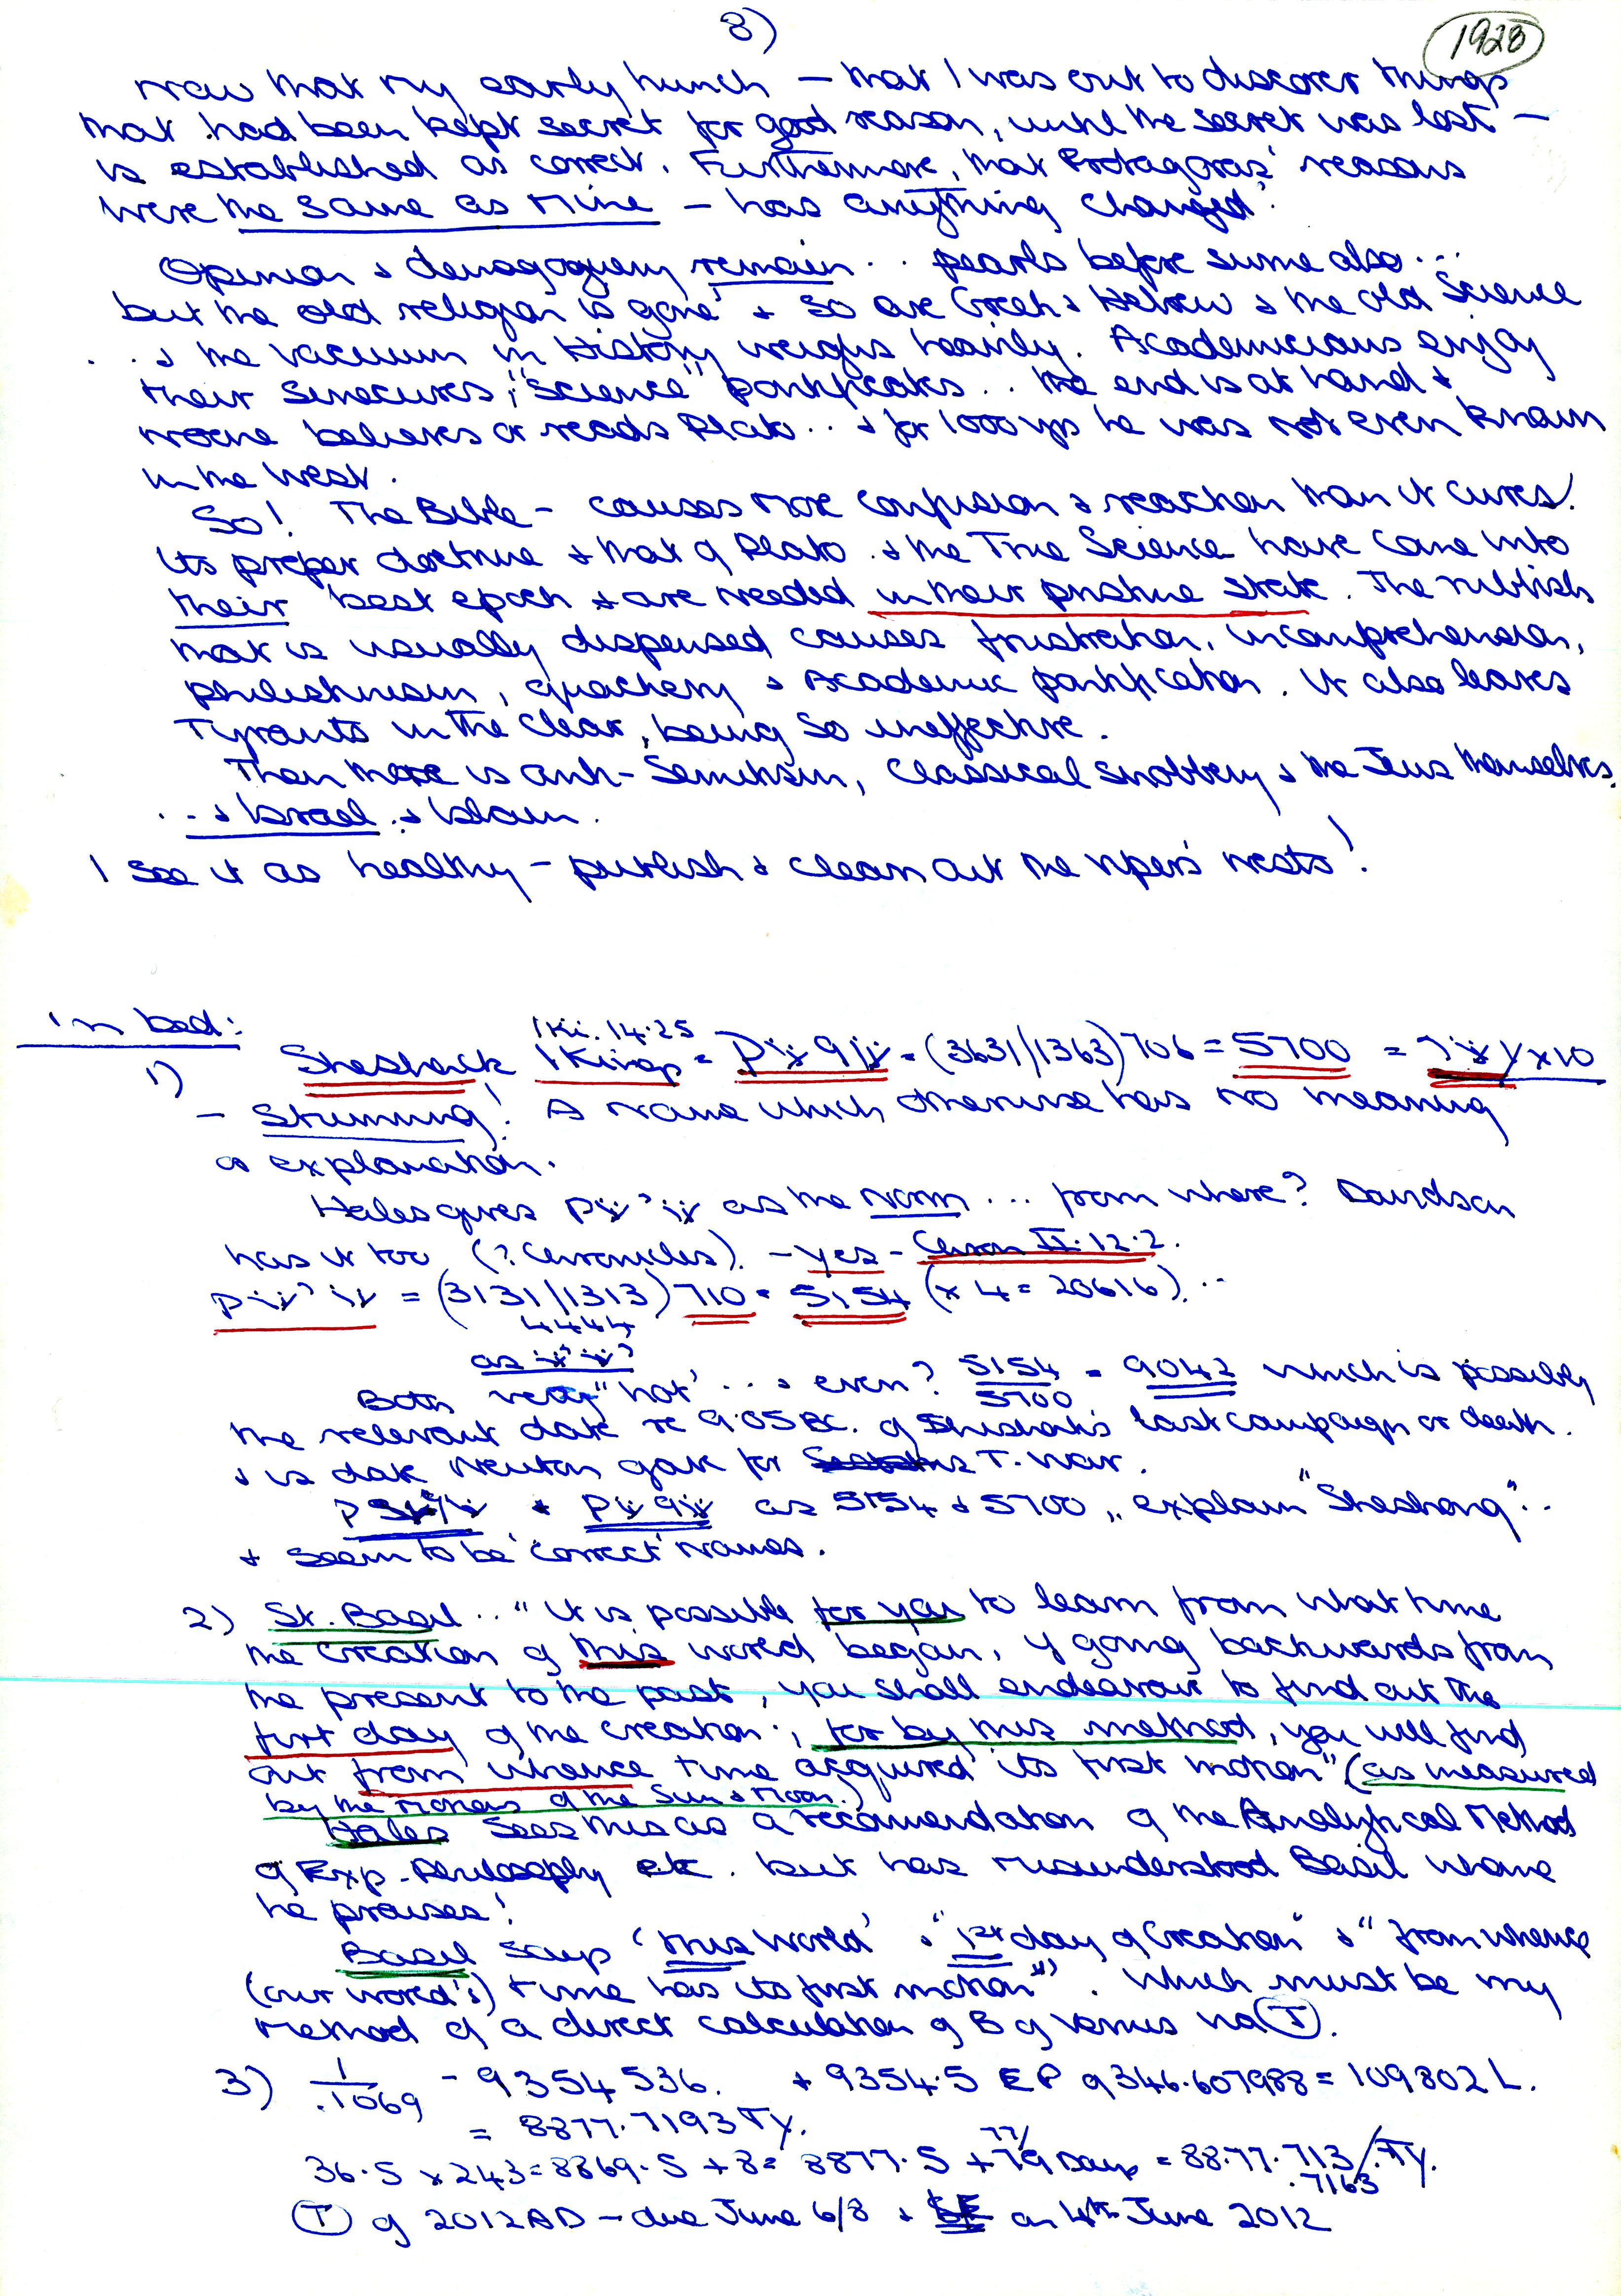 8)
1928
now that my early hunch – that I was out to discover things
that had been kept secret for good reason, until the secret was lost –
is established as correct. Furthermore, that Protagoras' reasons
were the same as mine – has anything changed?
Opinion & demagoguery remain .. pearls before swine also ...
but the old religion is gone & so are Greek & Hebrew & the old Science
.. & the vacuum in History weighs heavily. Academicians enjoy
their sinecures; "Science" pontificates .. the end is at hand &
noone believes or reads Plato .. & for 1000 yrs he was not even known
in the West.
So! The Bible – causes more confusion & reaction than it cures!
Its proper doctrine & that of Plato & the True Science have come into
their best epoch & are needed in their pristine state. The rubbish
that is usually dispensed causes frustration, incomprehension,
philistinism, quackery & Academic pontification. It also leaves
Tyrants in the clear, being so ineffective.
Then there is anti-Semitism, Classical snobbery & the Jews themselves.
... & Israel & Islam.
I see it as healthy – publish & clean out the vipers nests!
in bed:
1 Ki. 14.25
1) Sheshack 1 Kings = (3631/1363) 706 = 5700 = x 10
– Stunning! A name which otherwise has no meaning
or explanation.
Hales gives as the norm ... from where? Davidson
has it too (? Chronicles). – yes – Chron II. 12.2.
= (3131/1313) 710 = 5154 (x 4 = 20616) ..
4444
as
Both very "hot" ... & even? 5154/5700 = 9042 which is possibly
the relevant date re 9.05 BC. of Shishak's last campaign or death.
& is date Newton gave for T. War.
& as 5154 & 5700 ,, explain "Sheshonq" ..
& seem to be 'correct' names.
2) St. Basil .. "It is possible for you to learn from what time
the creation of this world began, if going backwards from
the present to the past, you shall endeavour to find out the
first day of the creation; for by this method, you will find
out from whence time acquired its first motion" (as measured
by the motions of the Sun & Moon.)
Hales sees this as a recomendation of the Analytical Method
of Exp. Philosophy etc. but has misunderstood Basil whome
he praises!
Basil says 'this world' & "1st day of Creation" & "from whence
(our world's) time has its first motion". Which must be my
method of a direct calculation of B of Venus via (T).
3) 1/.1069 – 9354536. & 9354.5 EP of 346.607988 = 109802 L.
= 8877.7193 TY.
36.5 x 243 = 8869.5 + 8 = 8877.5 + 77/79 Days = 8877.713/.7163 TY.
(T) of 2012 AD – due June 6/8 & on 4th June 2012